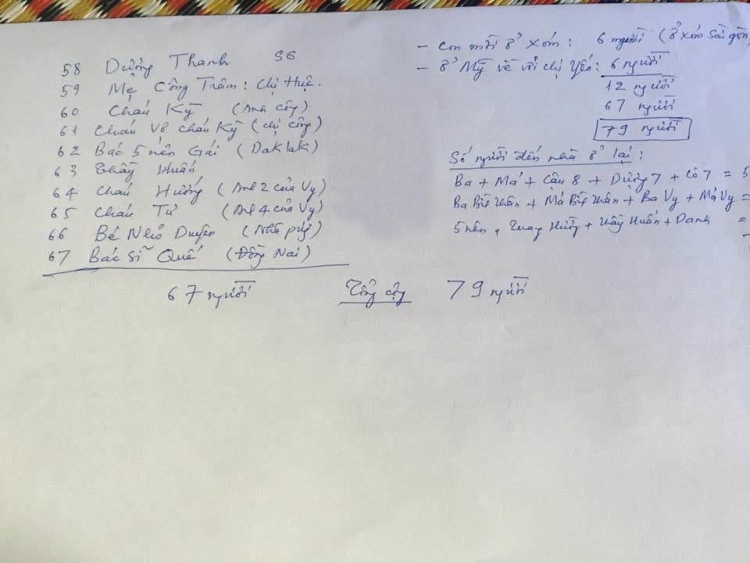 58 Dượng Thanh SG
59 Mẹ Công Trâm: chị Huệ.
60 Cháu Kỳ (Anh Công)
61 Cháu Vợ cháu Kỳ (chị Công)
62 Bác 5 nên Gái (DakLak)
63 Thầy Huấn
64 Cháu Hương (Anh 2 của Vy)
65 Cháu Tư (Anh 4 của Vy)
66 Bé Nhỏ Duyên
67 Bác Sĩ Quế (Đồng Nai)
67 người Tổng cộng 79 người
- Con mời ở Xóm: 6 người (ở xóm Sài gòn
- ở Mỹ về với chị Yến: 6 người
12 người
67 người
79 người
Số người đến nhà ở lại:
Ba + Má + Cậu 8 + Dượng 7 + Cô 7 = 5
+ Ba Vy + Má Vy =
5 nên, Hùng + Thầy Huấn + Danh =